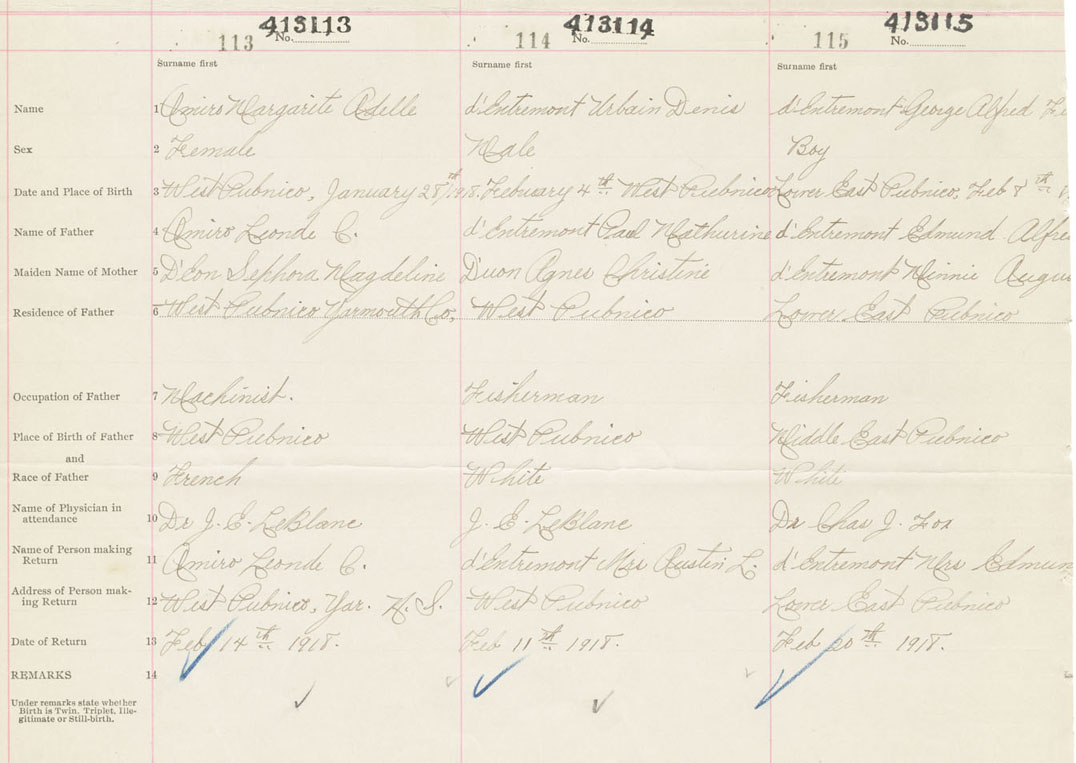 413113 413114 413115
113 No. 114 No. 115 No.
Surname first Surname first Surname first
Name 1 Amiro Margarite Adelle d'Entremont Urbain Denis d'Entremont George Alfred
Sex 2 Female Male Boy
Date and Place of Birth 3 West Pubnico, January 28th 1918. Febuary 4th West Pubnico Lower East Pubnico, Feb 8th
Name of Father 4 Amiro Leonde C. d'Entremont Paul Mathurine d'Entremont Edmund
Maiden Name of Mother 5 D'Eon Sephora Magdeline Duon Agnes Christine d'Entremont Minnie
Residence of Father 6 West Pubnico Yarmouth Co, West Pubnico Lower East Pubnico
Occupation of Father 7 Machinist. Fisherman Fisherman
Place of Birth of Father 8 West Pubnico West Pubnico Middle East Pubnico
and
Race of Father 9 French White White
Name of Physician in
attendance 10 Dr J. E. LeBlanc J. E. LeBlanc Dr Chas J. Fox
Name of Person making
Return 11 Amiro Leonde C. d'Entremont Mrs Austin L. d'Entremont Mrs
Address of Person mak-
ing Return 12 West Pubnico, Yar. N. S. West Pubnico Lower East Pubnico
Date of Return 13 Feb 14th 1918. Feb 11th 1918. Feb 20th 1918.
REMARKS 14
Under remarks state whether
Birth is Twin, Triplet, Ille-
gitimate or Still-birth.